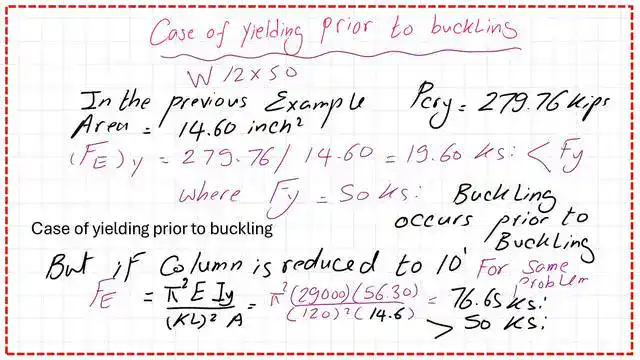 Case of yielding prior to buckling
W 12x50
In the previous Example Pcry = 279.76 kips
Area = 14.60 inch²
(FE)y = 279.76/14.60 = 19.60 ksi < Fy
where Fy = 50 ksi Buckling
occurs prior to
Buckling
Case of yielding prior to buckling
But if Column is reduced to 10' For same problem
FE = π² E Iy / (KL)² A = π² (29000)(56.30) / (120)² (14.6) = 76.65 ksi
> 50 ksi